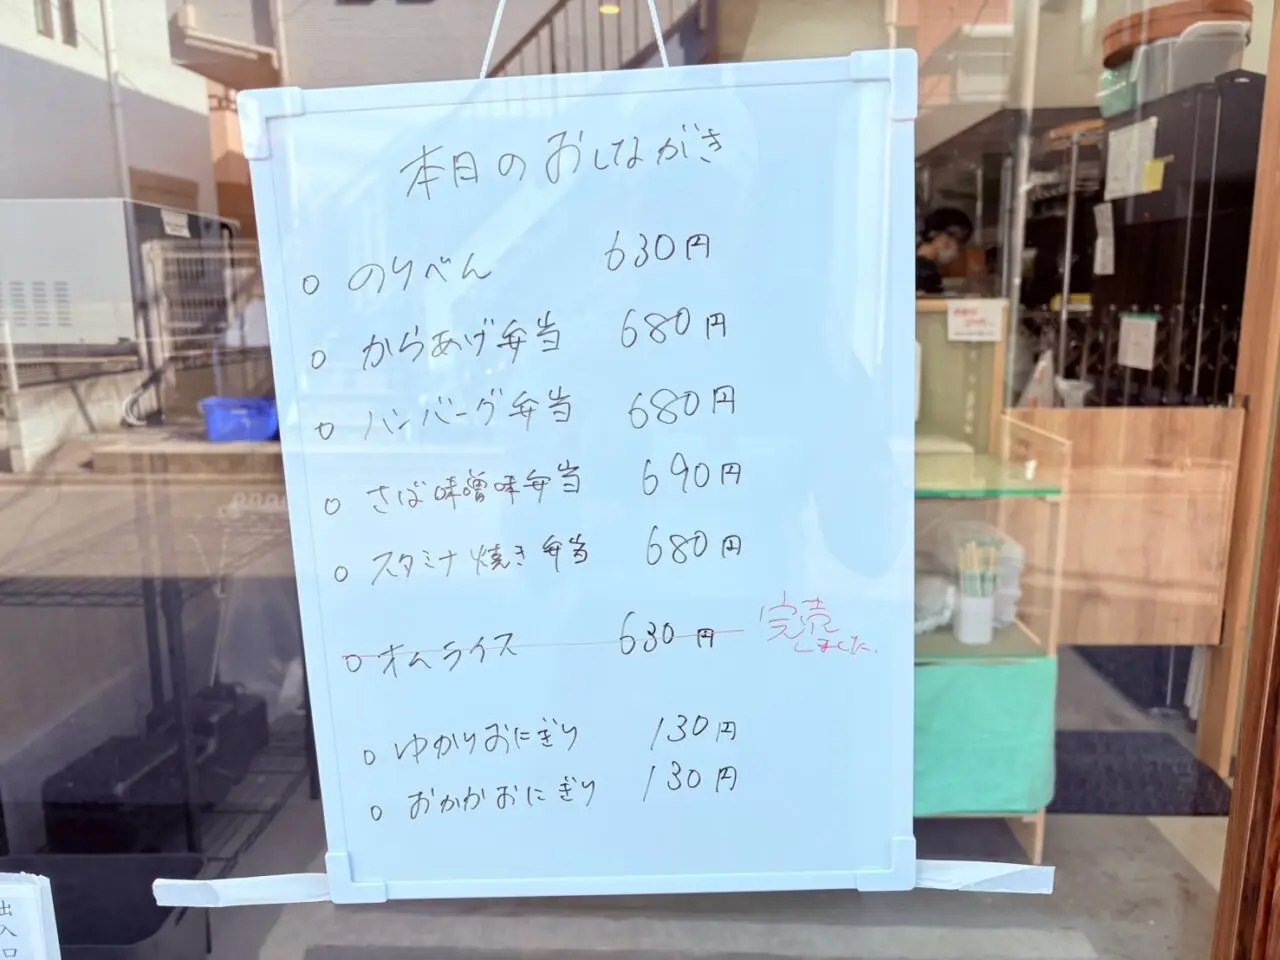 本日のおしながき
○ のりべん 630円
○ からあげ弁当 680円
○ ハンバーグ弁当 680円
○ さば味噌味弁当 690円
○ スタミナ焼き弁当 680円
○ オムライス 630円 完売しました。
○ ゆかりおにぎり 130円
○ おかかおにぎり 130円
出入口